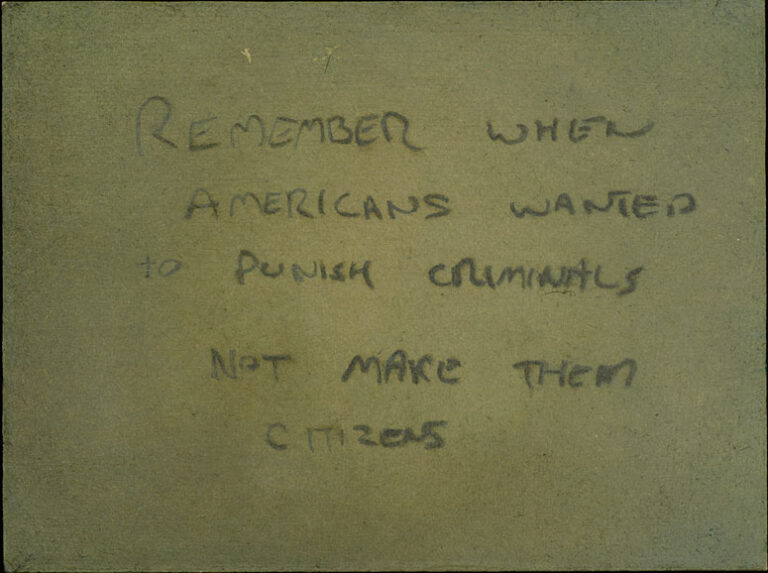 REMEMBER WHEN
AMERICANS WANTED
to PUNISH CRIMINALS
NOT MAKE THEM
CITIZENS